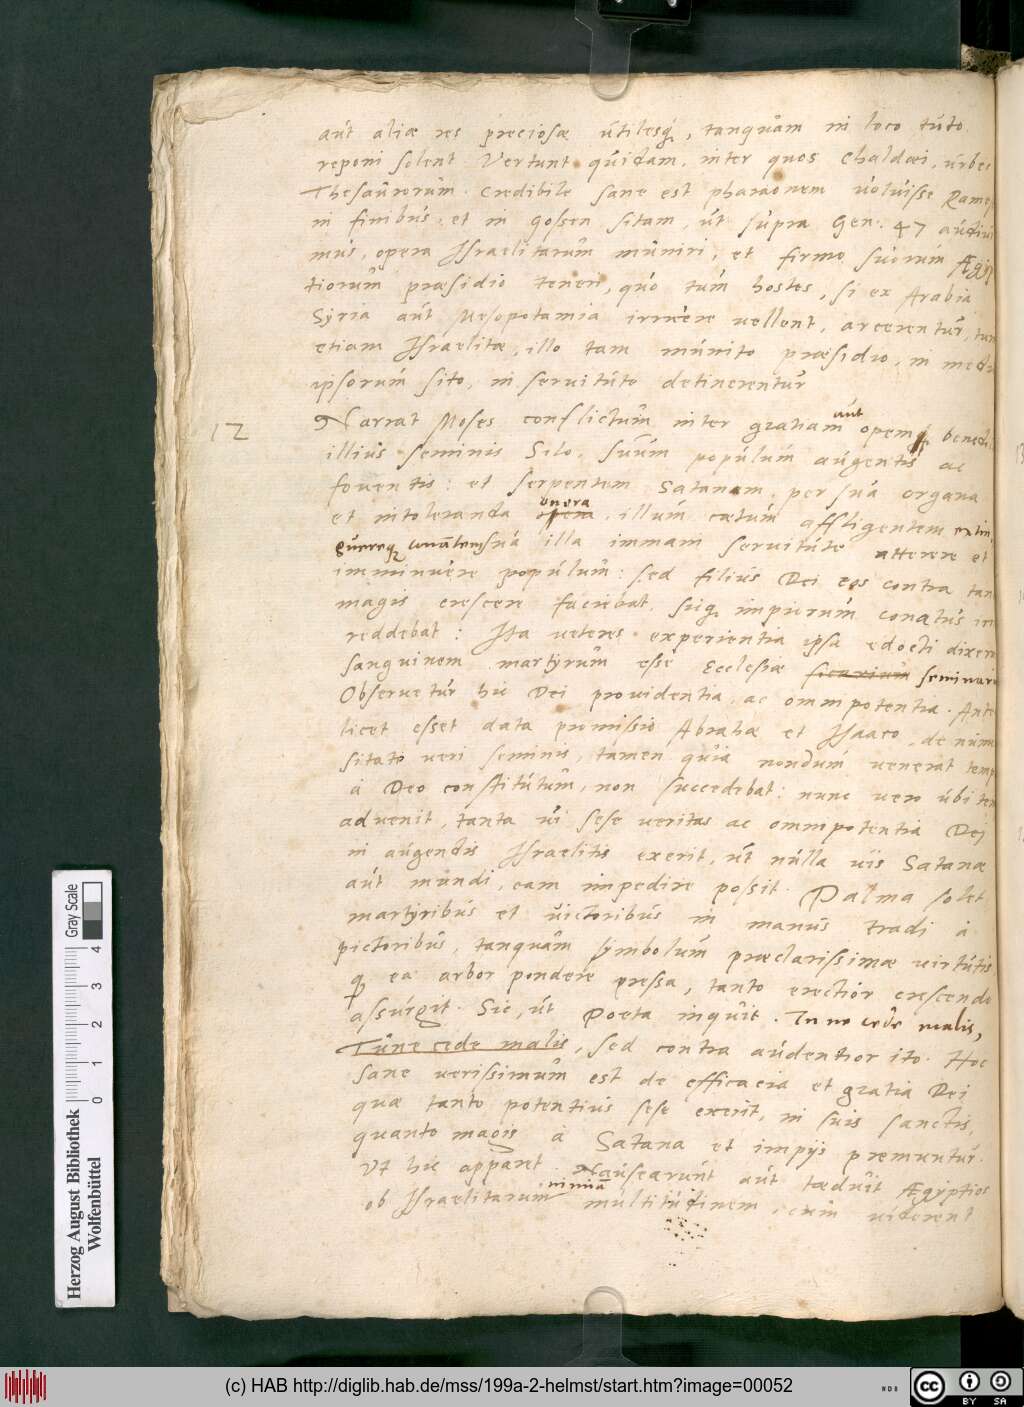 aut aliæ res preciosæ utilesq́, tanquam in loco tuto
reponi solent. Vertunt quidam, inter quos Chaldæi, urbes
Thesaurorum. Credibile sane est pharaonem voluisse Rame
in finibus, et in Gossen sitam, ut supra Gen. 47 audivi
mus, opera Israelitarum muniri, et firmo suorum Ægyp
tiorum præsidio teneri, quo tum hostes, si ex Arabia
Syria aut Mesopotamia irruere vellent, arcerentur, tum
etiam Israelitæ, illo tam munito præsidio, in medi
ipsorum sito, in servitute detinerentur
12 Narrat Moses conflictum inter gratiam aut opem benedi
illius seminis Silo, suum populum augentis ac
foventis: et serpentem Satanam, per sua organa
et intoleranda onera, illum cœtum affligentem extin
guereq conantem sua illa immani servitute atterere et
imminuere populum: sed filius Dei eos contra tan
magis crescere faciebat, siq. impiorum conatus irr
reddebat: Ita veteres experientia ipsa edocti dixeru
sanguinem martyrum esse Ecclesiæ seminari
Observetur hic Dei providentia, ac omnipotentia. Ante
licet esset data promissio Abrahæ et Isaaco, de nume
sitate veri seminis, tamen quia nondum venerat temp
à Deo constitutum, non succedebat: nunc vero ubi tem
advenit, tanta vi sese veritas ac omnipotentia Dei
in augendis Israelitis exerit, ut nulla vis Satanæ
aut mundi, eam impedire possit. Palma solet
martyribus et victoribus in manus tradi à
pictoribus, tanquam symbolum præclarissimæ virtutis
q ea arbor pondere pressa, tanto erectior crescendo
assurgit. Sic, ut Poeta inquit. Tu ne cede malis,
Tu ne cede malis, sed contra audentior ito. Hoc
sane verissimum est de efficacia et gratia Dei
quæ tanto potentius sese exerit, in suis sanctis,
quanto magis à Satana et impijs premuntur.
Vt hic apparet. Nausearunt aut tæduit Ægyptios
ob Israelitarum nimiā multitudinem, cum viderent
Herzog August Bibliothek
Wolfenbüttel
0 1 2 3 4
Gray Scale
(c) HAB http://diglib.hab.de/mss/199a-2-helmst/start.htm?image=00052
CC BY SA